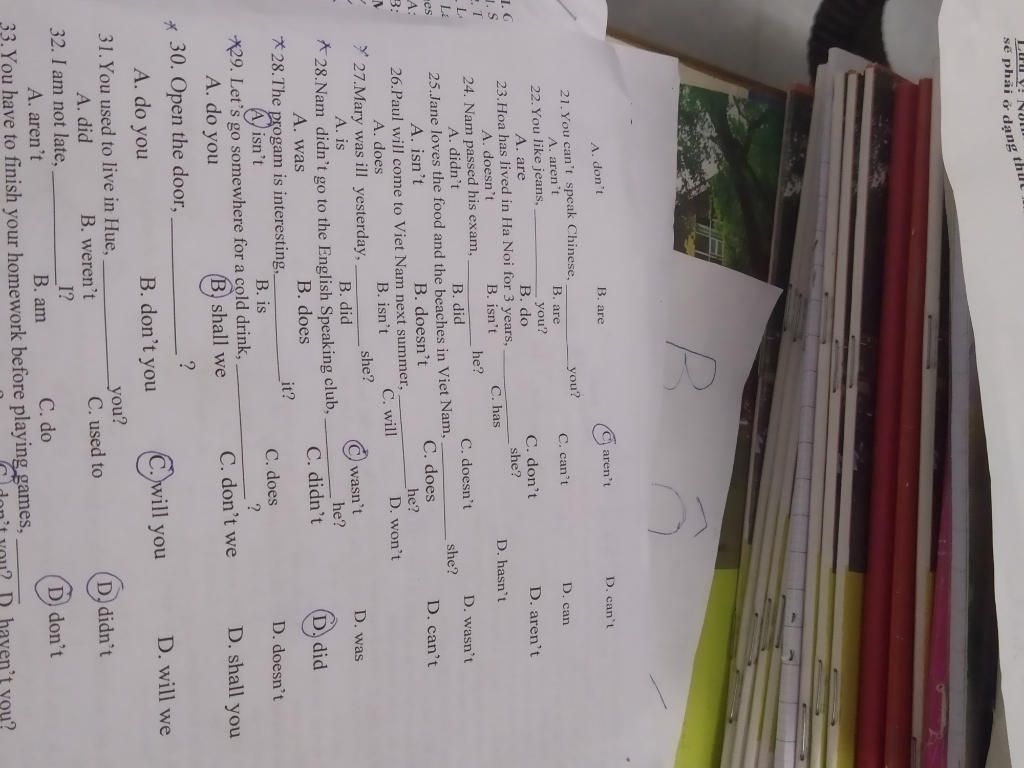 Lưu ý: Nếu động
sẽ phải ở dạng
A. don't B. are C. aren't D. can't
21.You can't speak Chinese,________you?
A. aren't B. are C. can't D. can
22.You like jeans,________ you?
A. are B. do C. don't D. aren't
23.Hoa has lived in Ha Noi for 3 years,________ she?
A. doesn't B. isn't C. has D. hasn't
24. Nam passed his exam,________ he?
A. didn't B. did C. doesn't D. wasn't
25.Jane loves the food and the beaches in Viet Nam,________ she?
A. isn't B. doesn't C. does D. can't
26.Paul will come to Viet Nam next summer,________ he?
A. does B. isn't C. will D. won't
* 27.Mary was ill yesterday,________ she?
A. is B. did C. wasn't D. was
* 28.Nam didn't go to the English Speaking club,________ he?
A. was B. does C. didn't D. did
* 28.The progam is interesting,________ it?
A. isn't B. is C. does D. doesn't
* 29. Let's go somewhere for a cold drink,________ ?
A. do you B. shall we C. don't we D. shall you
* 30. Open the door,________ ?
A. do you B. don't you C. will you D. will we
31.You used to live in Hue,________you?
A. did B. weren't C. used to D. didn't
32. I am not late,________I?
A. aren't B. am C. do D. don't
33.You have to finish your homework before playing games,________
don't you? D. haven't you?